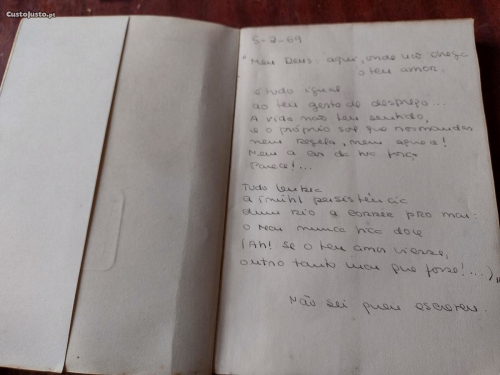 CustoJusto.pt
5-2-69
"Meu Deus: aqui, onde não chega
o teu amor.
é tudo igual
ao teu gesto de desprezo...
A vida não tem sentido,
e o próprio sol que nos mandas
nem , nem !
Nem a cor do
Parece!...
Tudo lembra
a inútil persistência
dum rio a correr pro mar:
o mar nunca fica doce
(Ah! Se o teu amor viesse,
outro tanto mar que fosse!...)"
Não sei quem escreveu.